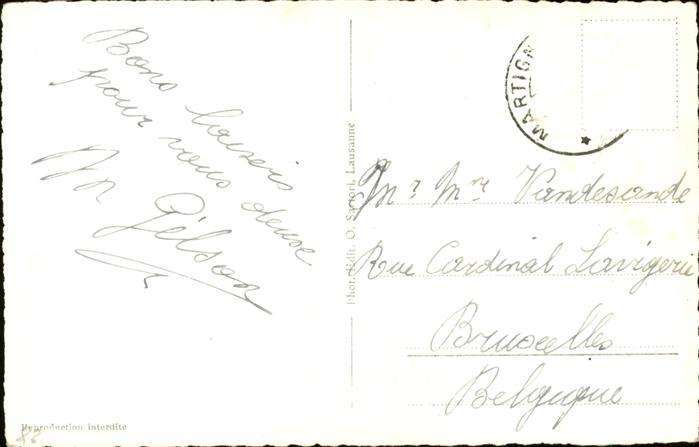 Bons baisers
pour vous deux
M Gilson
MARTIGN
Phot. Edit. O. Sartori, Lausanne
Mr Mme Vandesande
Rue Cardinal Lavigerie
Bruxelles
Belgique
Reproduction interdite